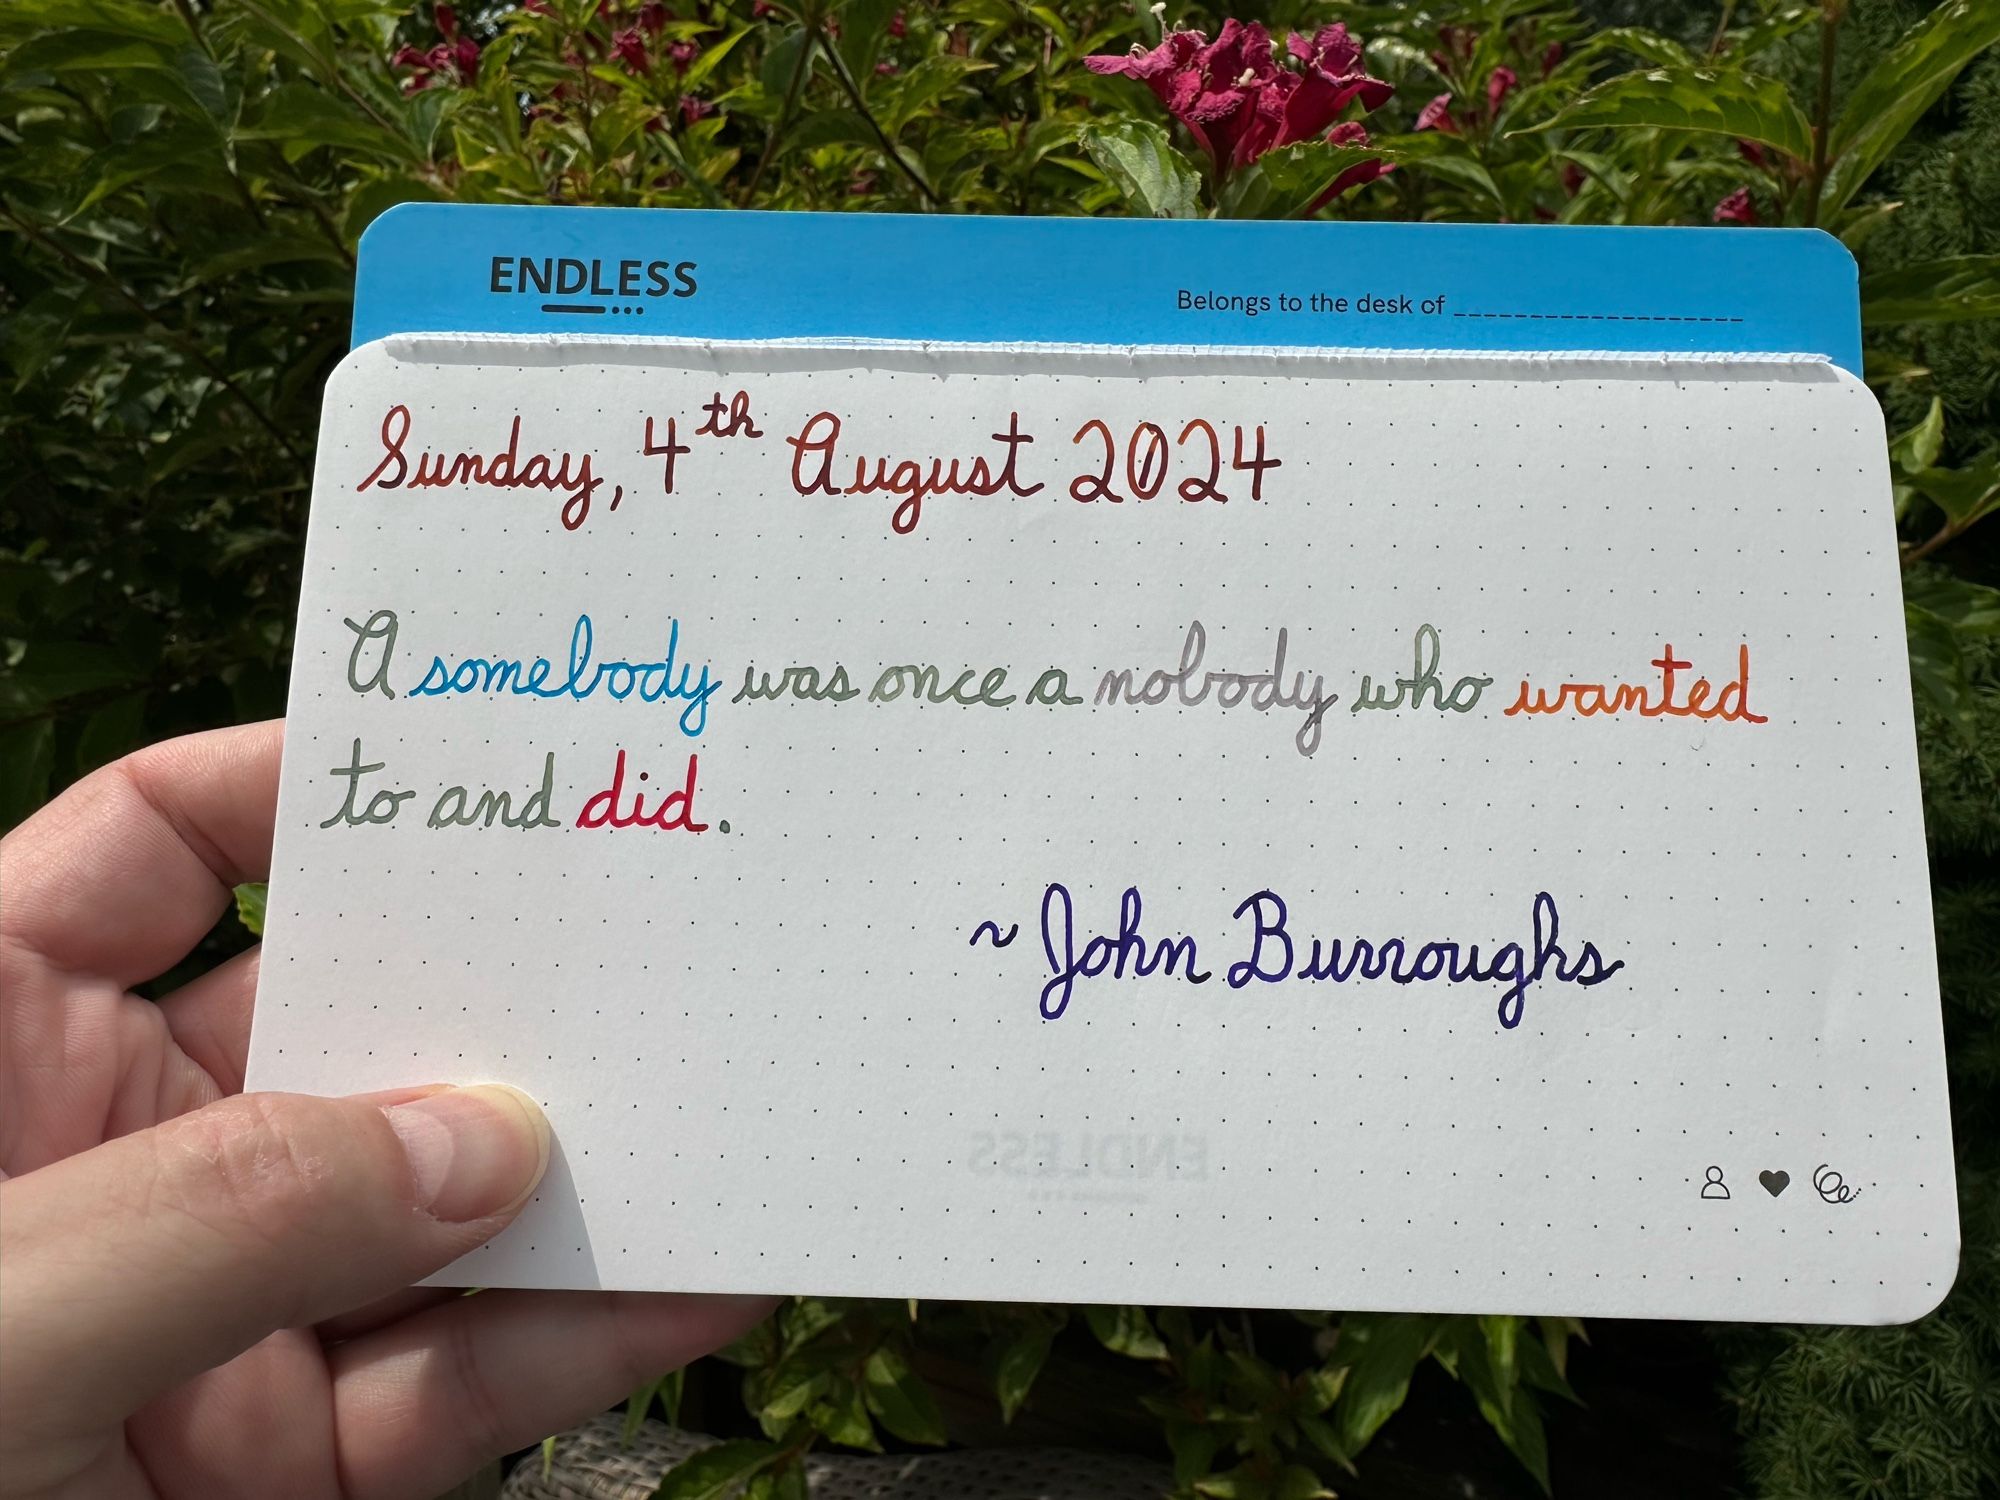 ENDLESS
Belongs to the desk of ____________________
Sunday, 4th August 2024
A somebody was once a nobody who wanted
to and did.
~ John Burroughs
ENDLESS